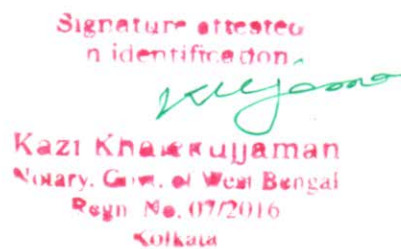 Signature attested
n identification
Kazi Khalekujjaman
Notary. Govt. of West Bengal
Regn No. 07/2016
Kolkata